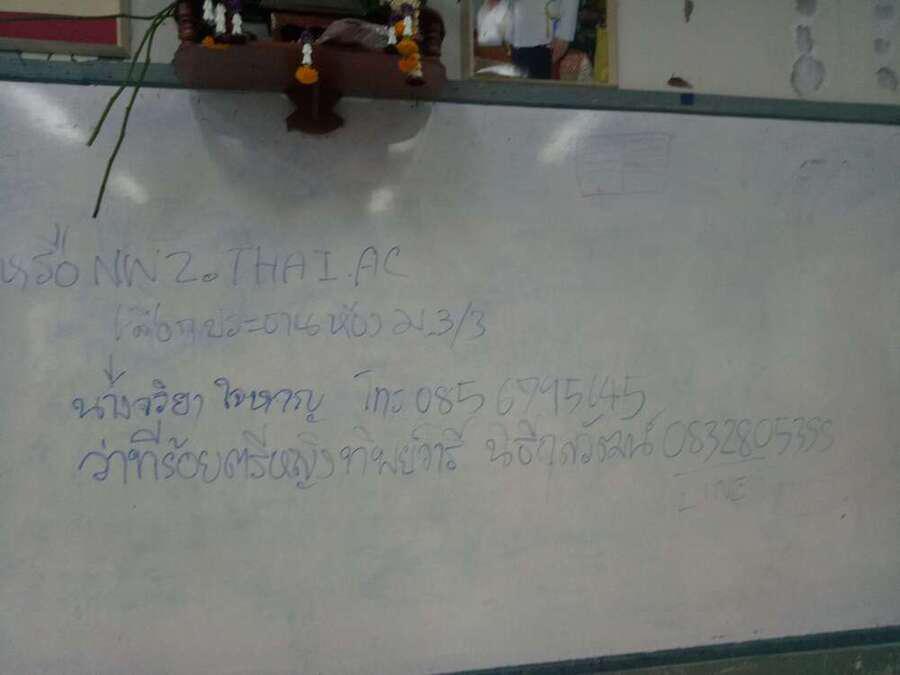 หรือ NW2.THAI.AC
เลือกประธานห้อง ม.3/3
นางจริยา ใจหาญ โทร 085 6795645
ว่าที่ร้อยตรีหญิงทิพย์วารี นิธิกุลวัฒน์ 0832805399
LINE